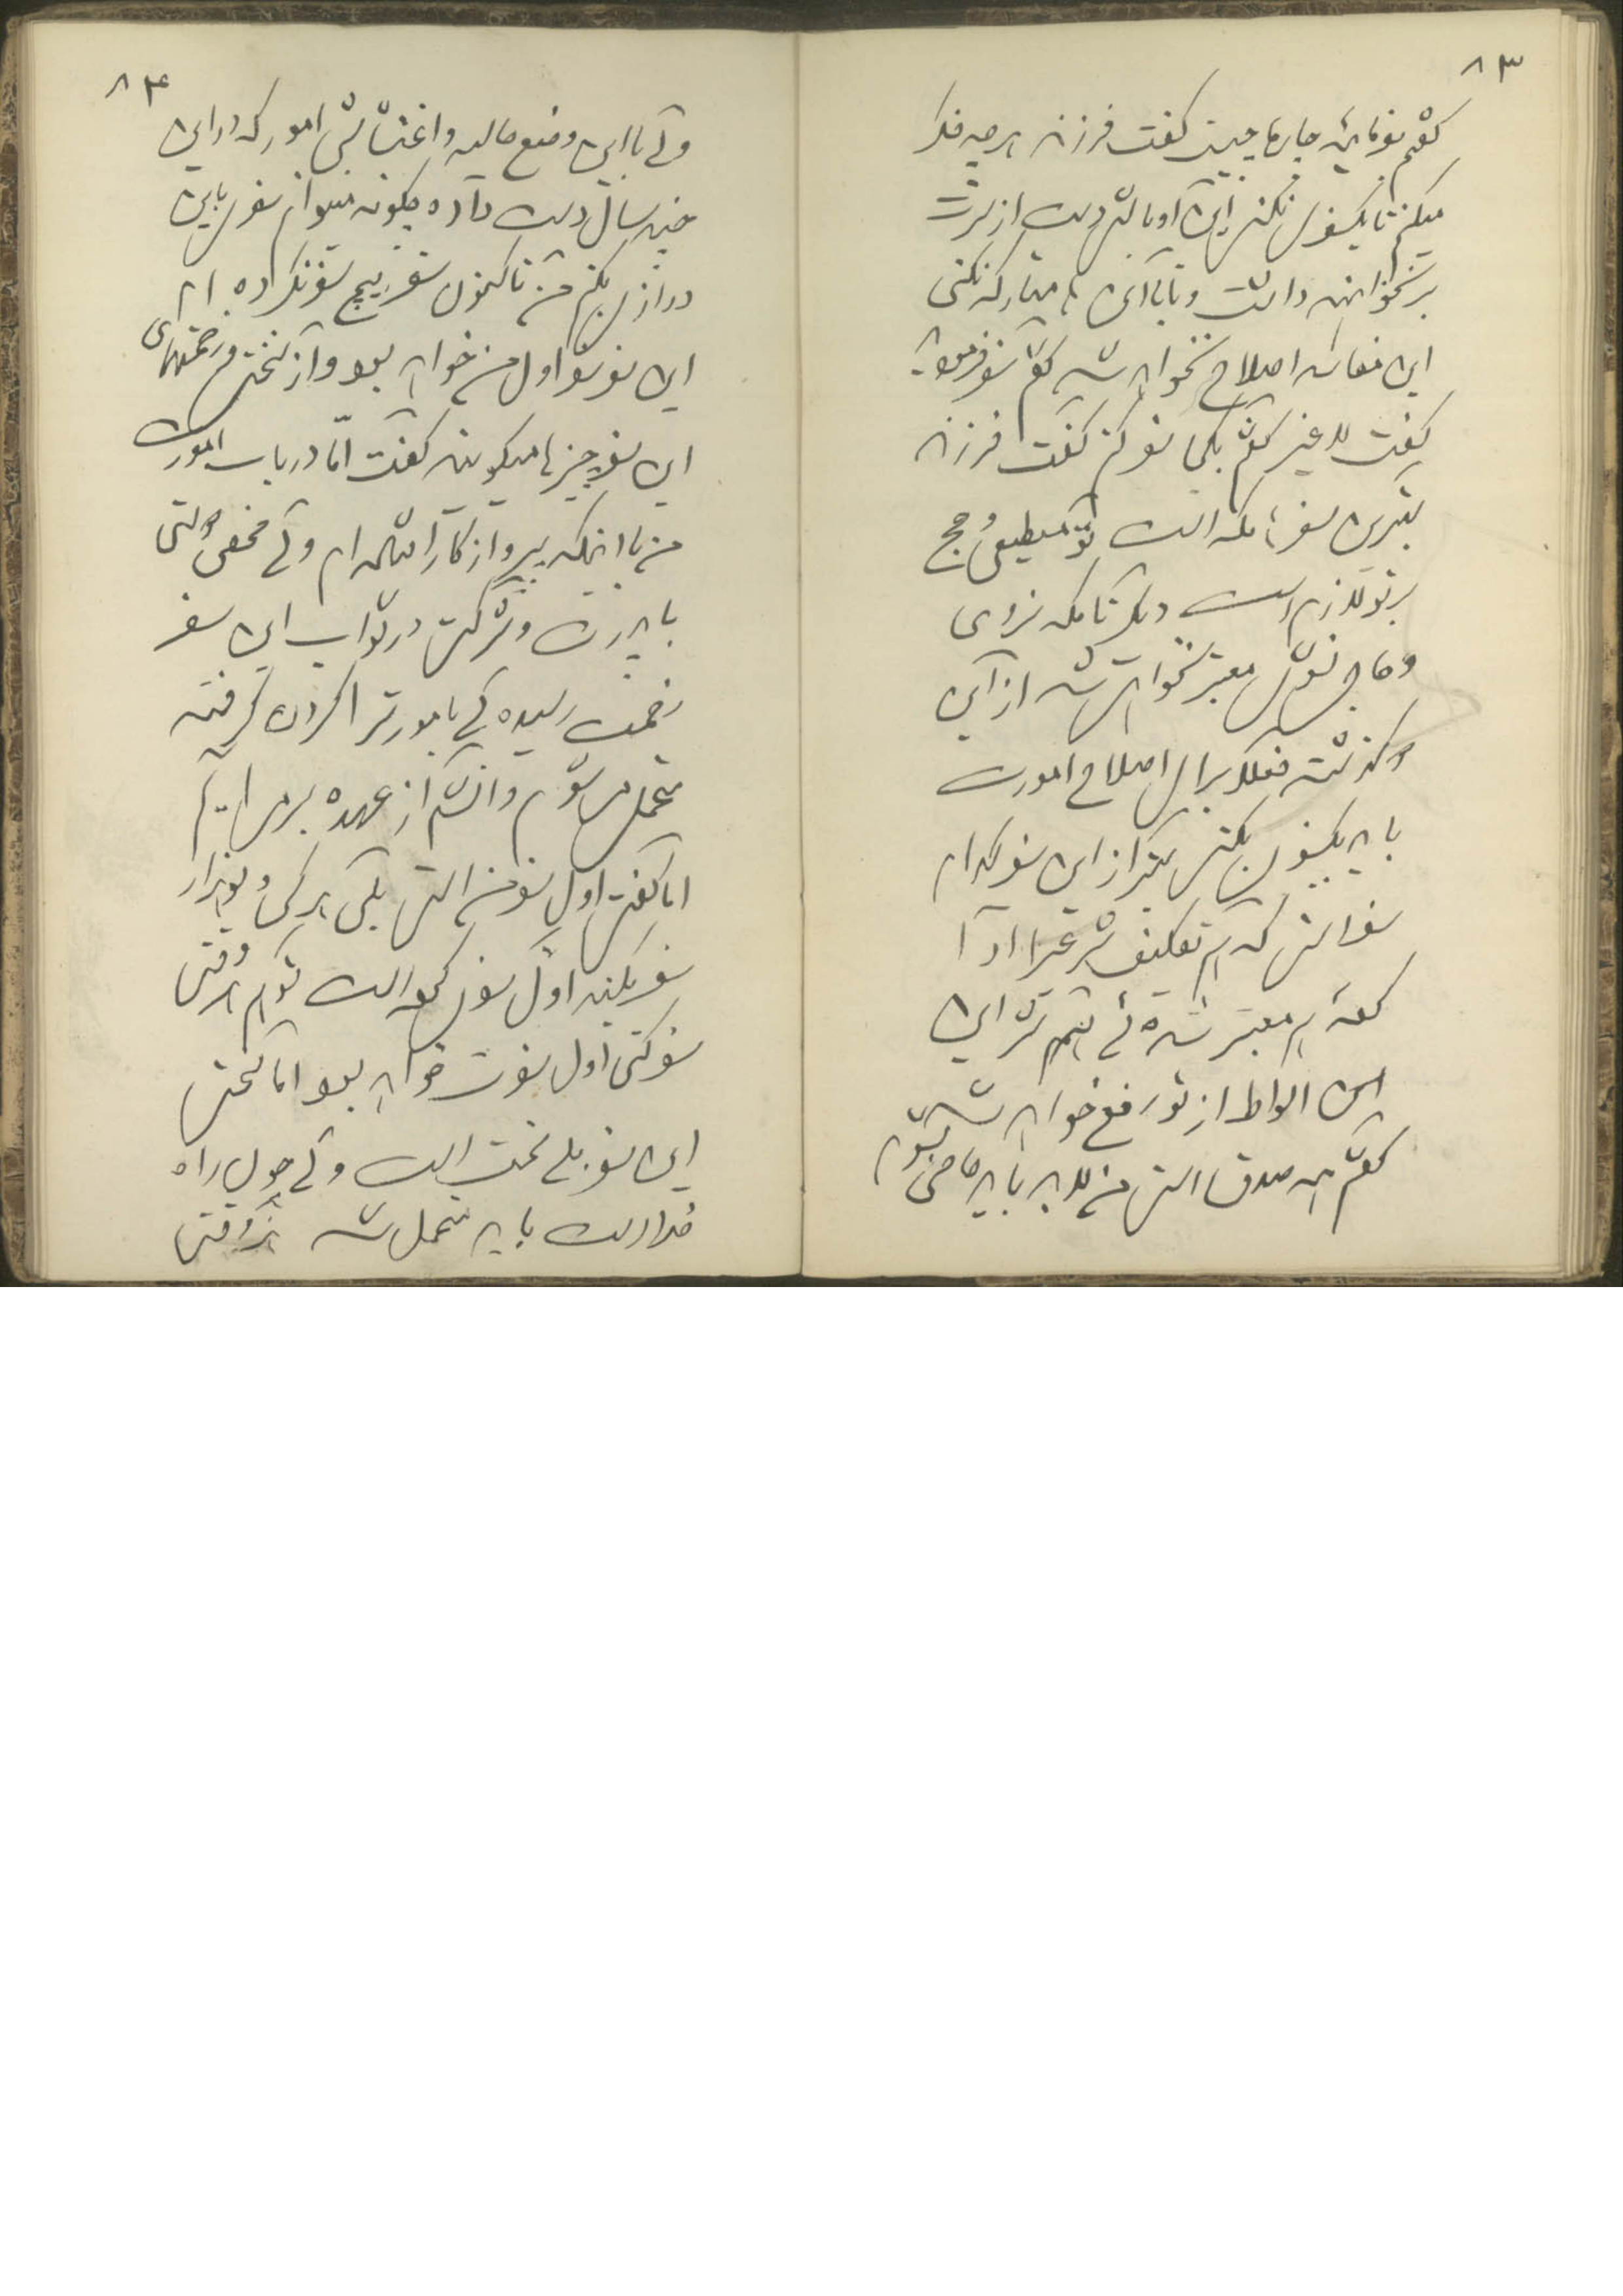 ۸۳
گفتم بفرمائید چاره‌ها چیست گفت فرزند هرچه فکر
میکنم تا یکسفری نکنی این اوباش دست از سرت
بر نخواهند داشت و تا با آنها متارکه نکنی
این مفاسد اصلاح نخواهد شد گفتم سفر فرمودید
گفت لاغیر گفتم بکجا سفر کنم گفت فرزند
بهترین سفرها مکه است تو مستطیعی و حج
بر تو لازم است دیگر تا مکه نروی
و حاجی نشوی معتبر نخواهی شد از این
گذشته فعلا برای اصلاح امورت
باید یکسفری بکنی بهتر از این سفر کدام
سفر است که هم تکلیف شرعیرا ادا
کرده هم معتبر شده ئی هم شر این
اجامر الواط از تو رفع خواهد شد
گفتم همه صدق است من لابد باید حاجی بشوم
۸۴
ولی با این وضع حالیه و اغتشاش امور که در این
چند سال دست داده چگونه میتوانم سفری باین
درازی بکنم من تاکنون سفر هیچ سفر نکرده ام
این سفر سفر اول من خواهد بود و از سختی و زحمتهای
این سفر چیزها میگویند گفت امّا در باب امورت
من با اینکه پیر و از کار افتاده ام ولی محض دوستی
با پدرت و شرکت در ثواب این سفر
زحمت رسیدگی بامور ترا گردن گرفته
متحمل میشوم و انشاالله از عهده بر می ایم
اما گفتی اول سفر من است بلی هر کس دو هزار
سفر بکند اول سفری کرده است تو هم هر وقتی
سفر کنی اول سفرت خواهد بود اما سختی
این سفر بلی سخت است ولی چون راه
خدا است باید متحمل شد هر وقتی